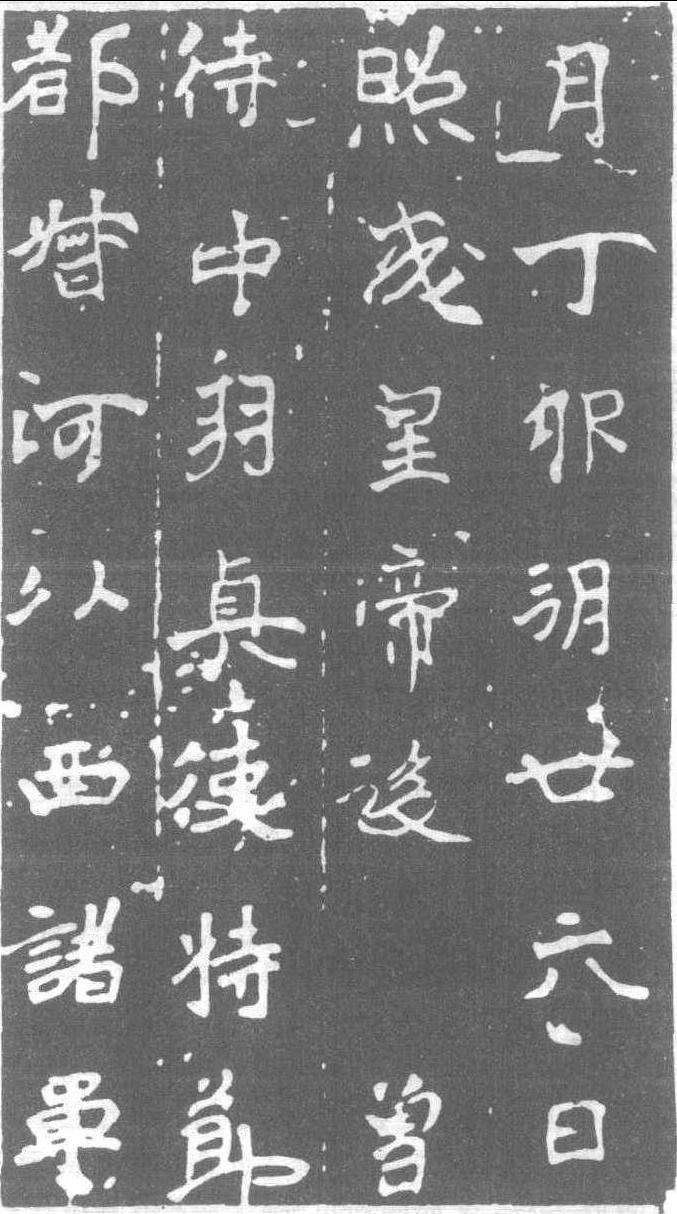 月丁卯朔廿六日
照成皇帝後 曾
侍中羽真使持節
都督河以西諸軍